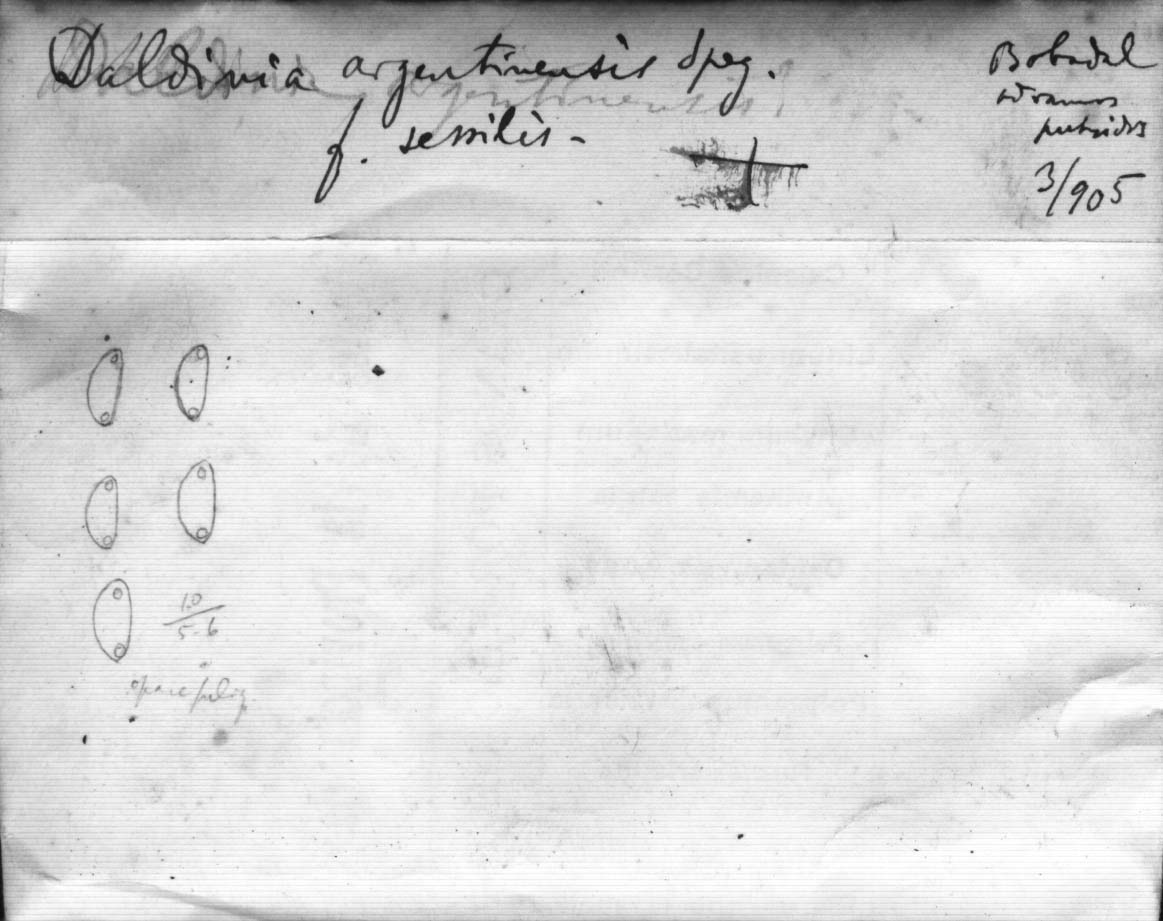 Daldinia argentinensis Speg.
f. sessilis -
Bobadal
ramos
putridos
3/905
10
5-6
opace fulig.